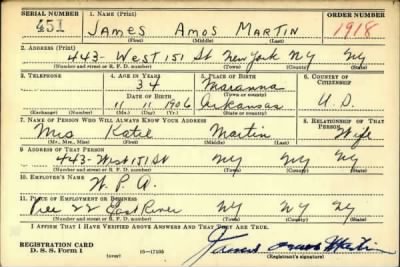 SERIAL NUMBER 1. NAME (Print) ORDER NUMBER
451 JAMES AMOS MARTIN 1918
(First) (Middle) (Last)
2. ADDRESS (Print)
443- West 151 St New York NY NY
(Number and street or R. F. D. number) (Town) (County) (State)
3. TELEPHONE 4. AGE IN YEARS 5. PLACE OF BIRTH 6. COUNTRY OF CITIZENSHIP
34 Marianna
DATE OF BIRTH (Town or county)
11 11 1906 Arkansas U.S.
(Exchange) (Number) (Mo.) (Day) (Yr.) (State or country)
7. NAME OF PERSON WHO WILL ALWAYS KNOW YOUR ADDRESS 8. RELATIONSHIP OF THAT PERSON
Mrs Katie Martin Wife
(Mr., Mrs., Miss) (First) (Middle) (Last)
9. ADDRESS OF THAT PERSON
443- West 151 St NY NY NY
(Number and street or R. F. D. number) (Town) (County) (State)
10. EMPLOYER'S NAME
W.P.A.
11. PLACE OF EMPLOYMENT OR BUSINESS
Pier 22 East River NY NY NY
(Number and street or R. F. D. number) (Town) (County) (State)
I AFFIRM THAT I HAVE VERIFIED ABOVE ANSWERS AND THAT THEY ARE TRUE.
REGISTRATION CARD
D. S. S. Form 1 (over) 16—17105 James Amos Martin